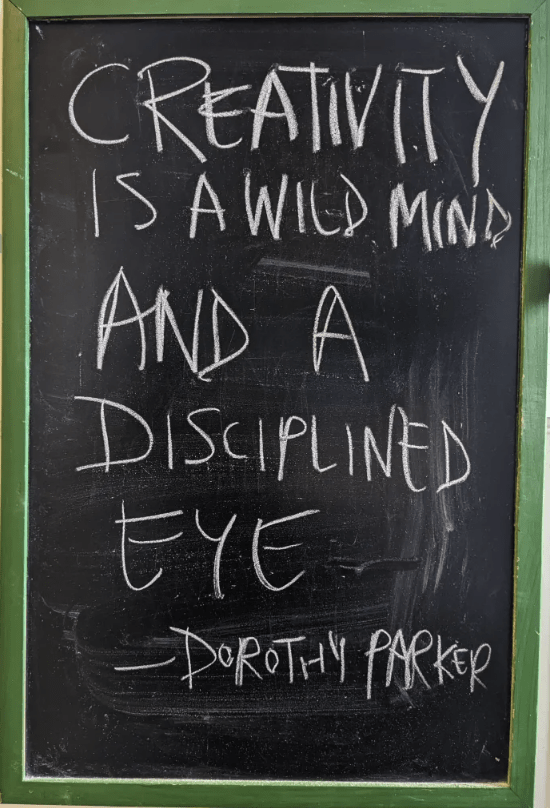 CREATIVITY
IS A WILD MIND
AND A
DISCIPLINED
EYE
—DOROTHY PARKER